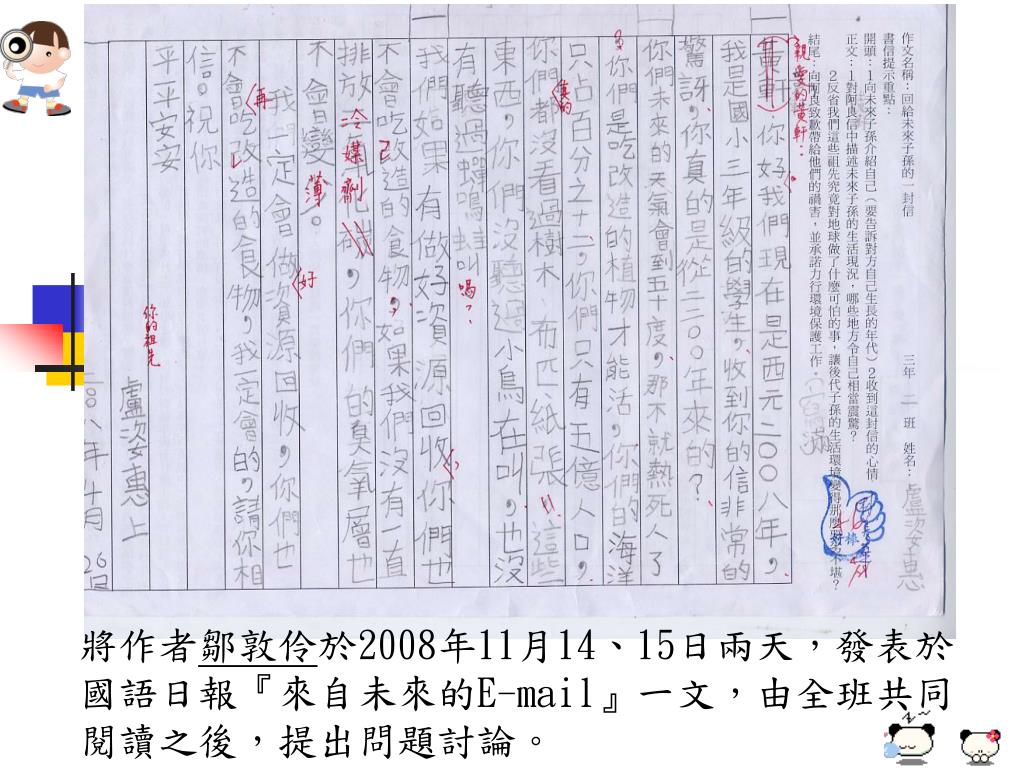 作文名稱：回給未來子孫的一封信
三年 二 班 姓名：盧姿惠
書信提示重點：
開頭：1向未來子孫介紹自己（要告訴對方自己生長的年代）2收到這封信的心情
正文：1對阿良信中描述未來子孫的生活現況，哪些地方令自己相當震驚？
2反省我們這些祖先究竟對地球做了什麼可怕的事，讓後代子孫的生活環境變得那麼
結尾：向阿良致歉帶給他們的禍害，並承諾力行環境保護工作。
親愛的黃軒：
你好我們現在是西元二００八年，
我是國小三年級的學生，收到你的信非常的
驚訝，你真的是從二二００年來的？
你們未來的天氣會到五十度，那不就熱死人了
？你們是吃改造的植物才能活，你們的海洋
只占百分之十二，你們只有五億人口，
你們真的都沒看過樹木、布匹、紙張，這些
東西，你們沒聽過小鳥在叫，也沒
有聽過蟬鳴蛙叫嗎？
我們如果有做好資源回收，你們也
不會吃改造的食物，如果我們沒有一直
排放冷媒劑，你們的臭氧層也
不會變薄。
我們一定會做好資源回收，你們也
不會再吃改造的食物，我一定會的，請你相
信。祝你
平平安安
你的祖先
盧姿惠 上
二００八年4月26日
將作者鄒敦伶於2008年11月14、15日兩天，發表於
國語日報『來自未來的E-mail』一文，由全班共同
閱讀之後，提出問題討論。